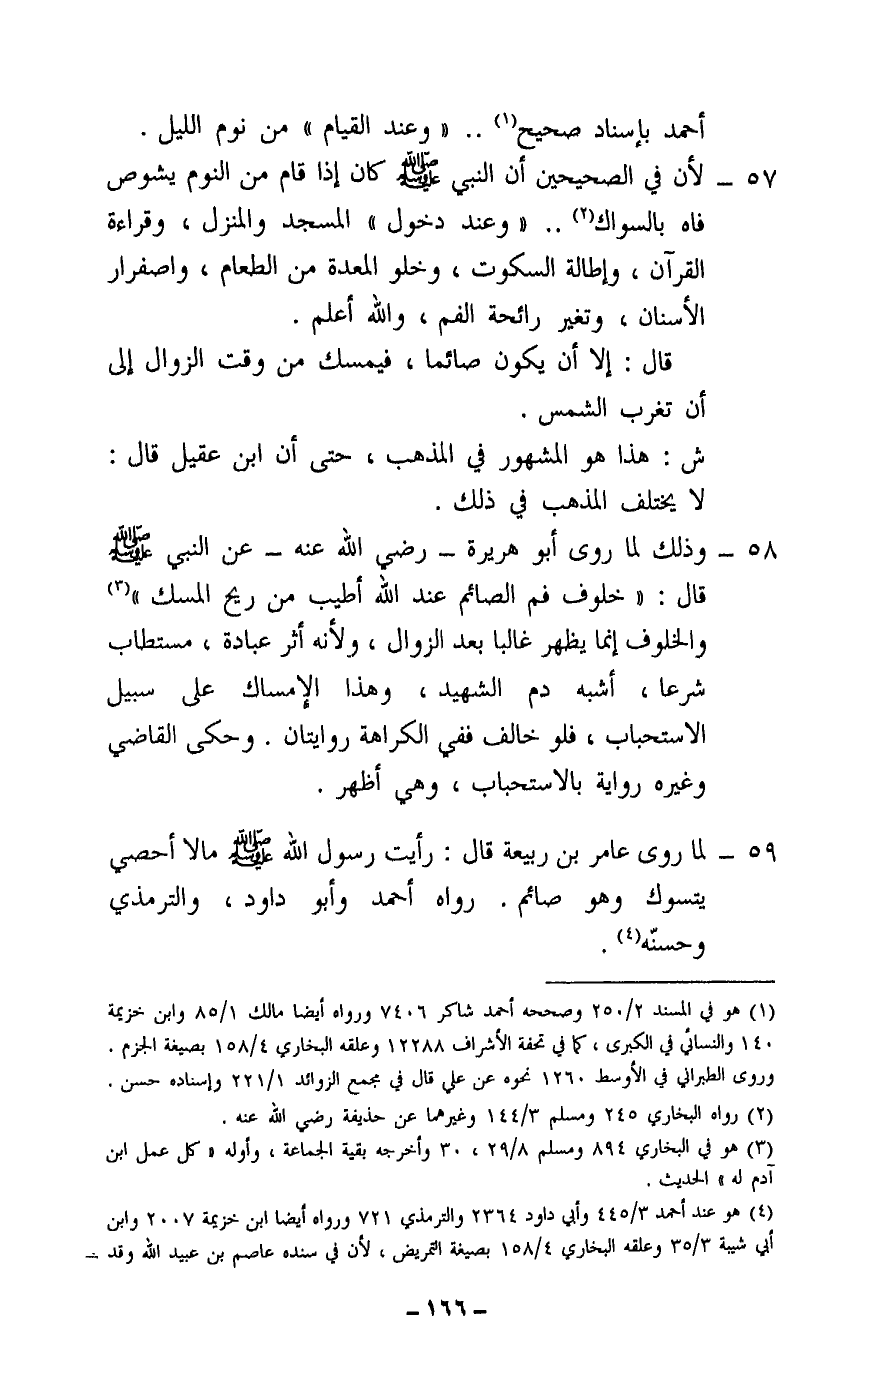 أحمد بإسناد صحيح(١) .. « وعند القيام » من نوم الليل .
٥٧ ــ لأن في الصحيحين أن النبي ﷺ كان إذا قام من النوم يشوص
فاه بالسواك(٢) .. « وعند دخول » المسجد والمنزل ، وقراءة
القرآن ، وإطالة السكوت ، وخلو المعدة من الطعام ، واصفرار
الأسنان ، وتغير رائحة الفم ، والله أعلم .
قال : إلا أن يكون صائما ، فيمسك من وقت الزوال إلى
أن تغرب الشمس .
ش : هذا هو المشهور في المذهب ، حتى أن ابن عقيل قال :
لا يختلف المذهب في ذلك .
٥٨ ــ وذلك لما روى أبو هريرة ــ رضي الله عنه ــ عن النبي ﷺ
قال : « خلوف فم الصائم عند الله أطيب من ريح المسك »(٣)
والخلوف إنما يظهر غالبا بعد الزوال ، ولأنه أثر عبادة ، مستطاب
شرعا ، أشبه دم الشهيد ، وهذا الإمساك على سبيل
الاستحباب ، فلو خالف ففي الكراهة روايتان . وحكى القاضي
وغيره رواية بالاستحباب ، وهي أظهر .
٥٩ ــ لما روى عامر بن ربيعة قال : رأيت رسول الله ﷺ مالا أحصي
يتسوك وهو صائم . رواه أحمد وأبو داود ، والترمذي
وحسنّه(٤) .
(١) هو في المسند ٢٥٠/٢ وصححه أحمد شاكر ٧٤٠٦ ورواه أيضا مالك ٨٥/١ وابن خزيمة
١٤٠ والنسائي في الكبرى ، كما في تحفة الأشراف ١٢٢٨٨ وعلقه البخاري ١٥٨/٤ بصيغة الجزم .
وروى الطبراني في الأوسط ١٢٦٠ نحوه عن علي قال في مجمع الزوائد ٢٢١/١ وإسناده حسن .
(٢) رواه البخاري ٢٤٥ ومسلم ١٤٤/٣ وغيرهما عن حذيفة رضي الله عنه .
(٣) هو في البخاري ٨٩٤ ومسلم ٢٩/٨ ، ٣٠ وأخرجه بقية الجماعة ، وأوله « كل عمل ابن
آدم له » الحديث .
(٤) هو عند أحمد ٤٤٥/٣ وأبي داود ٢٣٦٤ والترمذي ٧٢١ ورواه أيضا ابن خزيمة ٢٠٠٧ وابن
أبي شيبة ٣٥/٣ وعلقه البخاري ١٥٨/٤ بصيغة التمريض ، لأن في سنده عاصم بن عبيد الله وقد =
ــ ١٦٦ ــ